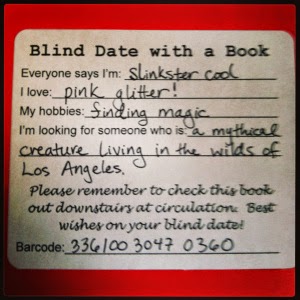 Blind Date with a Book
Everyone says I'm: Slinkster cool
I love: pink glitter!
My hobbies: finding magic
I'm looking for someone who is: a mythical
creature living in the wilds of
Los Angeles.
Please remember to check this book
out downstairs at circulation. Best
wishes on your blind date!
Barcode: 336100 3047 0360